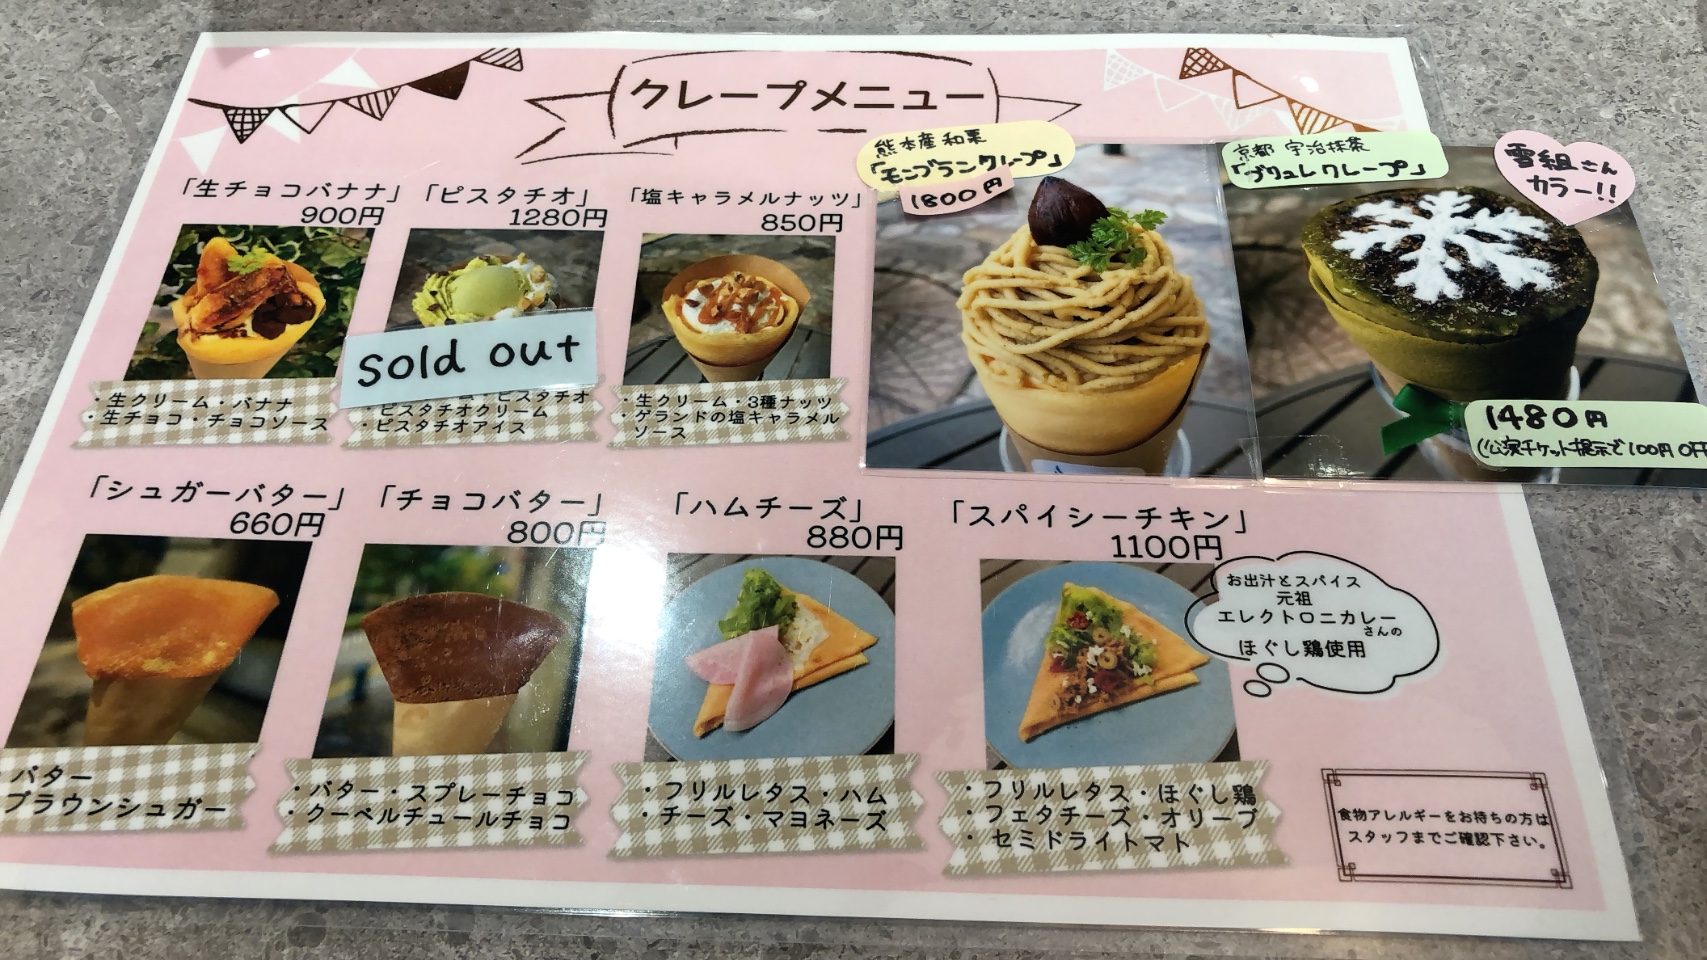 クレープメニュー
「生チョコバナナ」
900円
・生クリーム・バナナ
・生チョコ・チョコソース
「ピスタチオ」
1280円
sold out
ム・ピスタチオ
・ピスタチオクリーム
・ピスタチオアイス
「塩キャラメルナッツ」
850円
・生クリーム・3種ナッツ
・ゲランドの塩キャラメル
ソース
熊本産 和栗
「モンブランクレープ」
1800円
京都 宇治抹茶
「ブリュレクレープ」
雪組さん
カラー!!
1480円
(公演チケット提示で100円OFF
「シュガーバター」
660円
・バター
ブラウンシュガー
「チョコバター」
800円
・バター・スプレーチョコ
・クーベルチュールチョコ
「ハムチーズ」
880円
・フリルレタス・ハム
・チーズ・マヨネーズ
「スパイシーチキン」
1100円
・フリルレタス・ほぐし鶏
・フェタチーズ・オリーブ
・セミドライトマト
お出汁とスパイス
元祖
エレクトロニカレー
さんの
ほぐし鶏使用
食物アレルギーをお持ちの方は
スタッフまでご確認下さい。